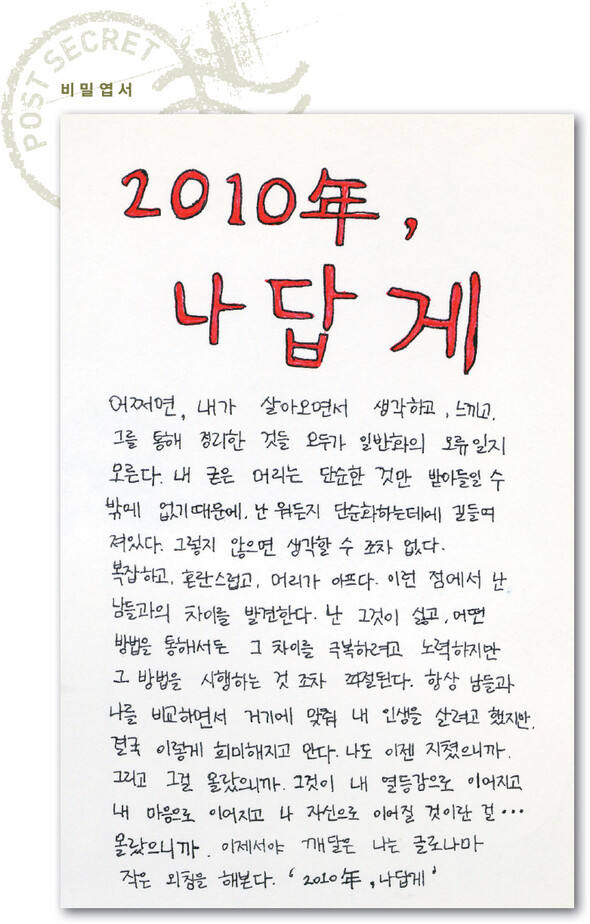 POST SECRET
비밀엽서
2010年,
나답게
어쩌면, 내가 살아오면서 생각하고, 느끼고,
그를 통해 정리한 것들 모두가 일반화의 오류일지
모른다. 내 굳은 머리는 단순한 것만 받아들일 수
밖에 없기때문에, 난 뭐든지 단순화하는데에 길들여
져있다. 그렇지 않으면 생각할 수 조차 없다.
복잡하고, 혼란스럽고, 머리가 아프다. 이런 점에서 난
남들과의 차이를 발견한다. 난 그것이 싫고, 어떤
방법을 통해서든 그 차이를 극복하려고 노력하지만
그 방법을 시행하는 것 조차 좌절된다. 항상 남들과
나를 비교하면서 거기에 맞춰 내 인생을 살려고 했지만,
결국 이렇게 희미해지고 만다. 나도 이젠 지쳤으니까.
그리고 그걸 몰랐으니까. 그것이 내 열등감으로 이어지고
내 마음으로 이어지고 나 자신으로 이어질 것이란 걸…
몰랐으니까. 이제서야 깨달은 나는 글로나마
작은 외침을 해본다. '2010年, 나답게'